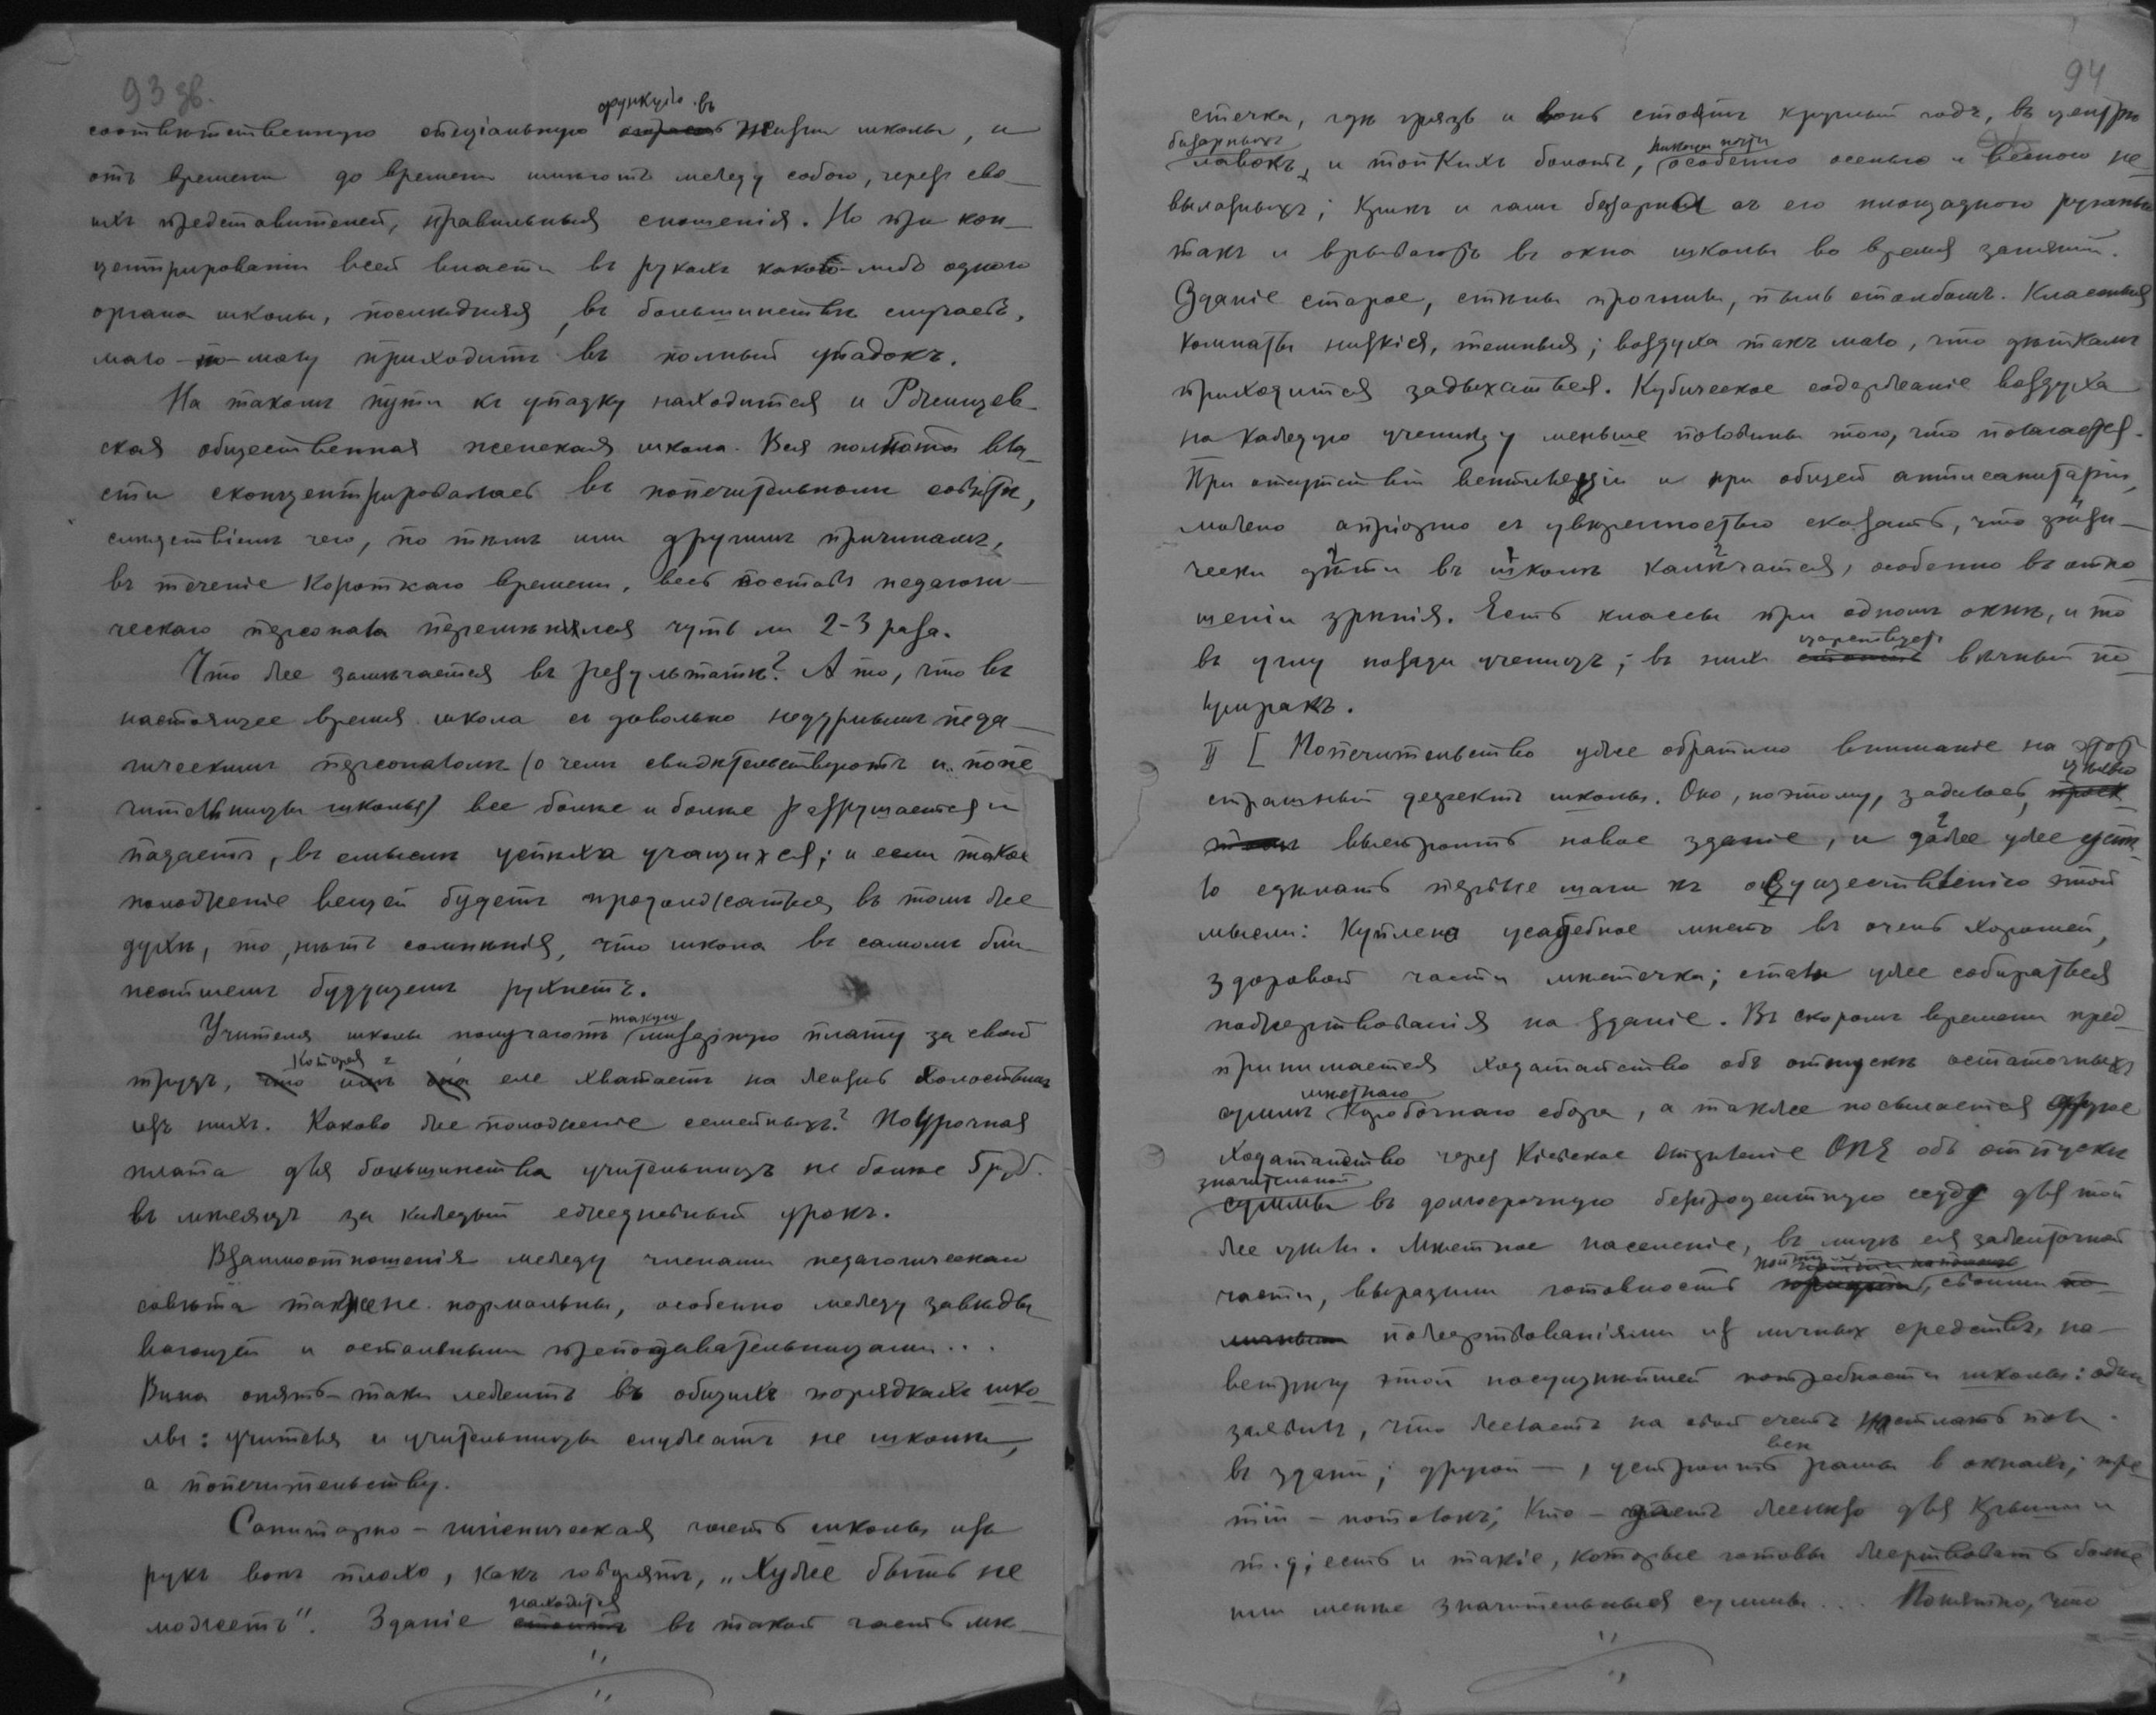 93 зв.
соотвѣтственную спеціальную функцію въ жизни школы, и
отъ времени до времени имѣютъ между собою, черезъ сво-
ихъ представителей, правильныя сношенія. Но при кон-
центрированіи всей власти въ рукахъ какого-либо одного
органа школы, послѣдняя, въ большинствѣ случаевъ,
мало-по-малу приходитъ въ полный упадокъ.
На такомъ пути къ упадку находится и Ржищев-
ская общественная женская школа. Вся полнота вла-
сти сконцентрировалась въ попечительномъ совѣтѣ,
слѣдствіемъ чего, по тѣмъ или другимъ причинамъ,
въ теченіе короткаго времени, весь составъ педагоги-
ческаго персонала перемѣнился чуть ли 2-3 раза.
Что же замѣчается въ результатѣ? А то, что въ
настоящее время школа съ довольно недурнымъ педа-
гическимъ персоналомъ (о чемъ свидѣтельствуютъ и попе
чительницы школы) все болѣе и болѣе разрушается и
падаетъ, въ смыслѣ успѣха учащихся; и если такое
положеніе вещей будетъ продолжаться въ томъ же
духѣ, то, нѣтъ сомнѣнія, что школа въ самомъ бли-
жайшемъ будущемъ рухнетъ.
Учителя школы получаютъ такую мизерную плату за свой
трудъ, что имъ она которая еле хватаетъ на жизнь холостымъ
изъ нихъ. Каково же положеніе семейныхъ? Поурочная
плата для большинства учительницъ не болѣе 5 руб.
въ мѣсяцъ за каждый ежедневный урокъ.
Взаимоотношенія между членами педагогическаго
совѣта также не нормальны, особенно между завѣды
вающей и остальными преподавательницами...
Вина опять-таки лежитъ въ общихъ порядкахъ шко
лы: учителя и учительницы служатъ не школѣ,
а попечительству.
Санитарно-гигіеническая часть школы изъ
рукъ вонъ плохо, какъ говорятъ, „Хуже быть не
можетъ". Зданіе стоитъ находится въ такой части мѣ-
94
стечка, гдѣ грязь и вонь стоятъ круглый годъ, въ центрѣ
базарныхъ лавокъ, и топкихъ болотъ, никогда почти особенно осенью и весною не
вылазныхъ; Крикъ и гамъ базарный съ его площадного руганью
такъ и врываются въ окна школы во время занятій.
Зданіе старое, стѣны прогнили, пыль столбомъ. Классныя
комнаты низкія, темныя; воздуха такъ мало, что дѣткамъ
приходится задыхаться. Кубическое содержаніе воздуха
на каждую ученицу меньше половины того, что полагается.
При отсутствіи вентиляціи и при общей антисанитаріи,
можно апріорно съ увѣренностью сказать, что физи-
чески дѣти въ школѣ калѣчатся, особенно въ отно
шеніи зрѣнія. Есть классы при одномъ окнѣ, и то
въ углу позади ученицъ; въ нихъ царствуетъ вѣчный по
лумракъ.
II [ Попечительство уже обратило вниманіе на этотъ
страшный дефектъ школы. Оно, поэтому, задалось цѣлью
выстроить новое зданіе, и даже уже успѣ
ло сдѣлать первые шаги къ осуществленію этой
мысли: Куплено усадебное мѣсто въ очень хорошей,
здоровой части мѣстечка; стали уже собираться
пожертвованія на зданіе. Въ скоромъ времени пред-
принимается ходатайство объ отпускѣ остаточныхъ
суммъ мѣстнаго коробочнаго сбора, а также посылается другое
ходатайство черезъ Кіевское Отдѣленіе ОПЕ объ отпускѣ
значительной суммы въ долгосрочную безпроцентную ссуду для той
же цѣли. Мѣстное населеніе, въ лицѣ ея зажиточной
части, выразили готовность пойти своими
пожертвованіями изъ личныхъ средствъ, на-
встрѣчу этой насущнѣйшей потребности школы: одинъ
заявилъ, что желаетъ на свой счетъ настлать полъ
въ зданіи; другой — устроить всѣ рамы в окнахъ; тре
тій - потолокъ; Кто - даетъ желѣзо для крыши и
т.д; есть и такіе, которые готовы жертвовать болѣе
или менѣе значительныя суммы... Понятно, что